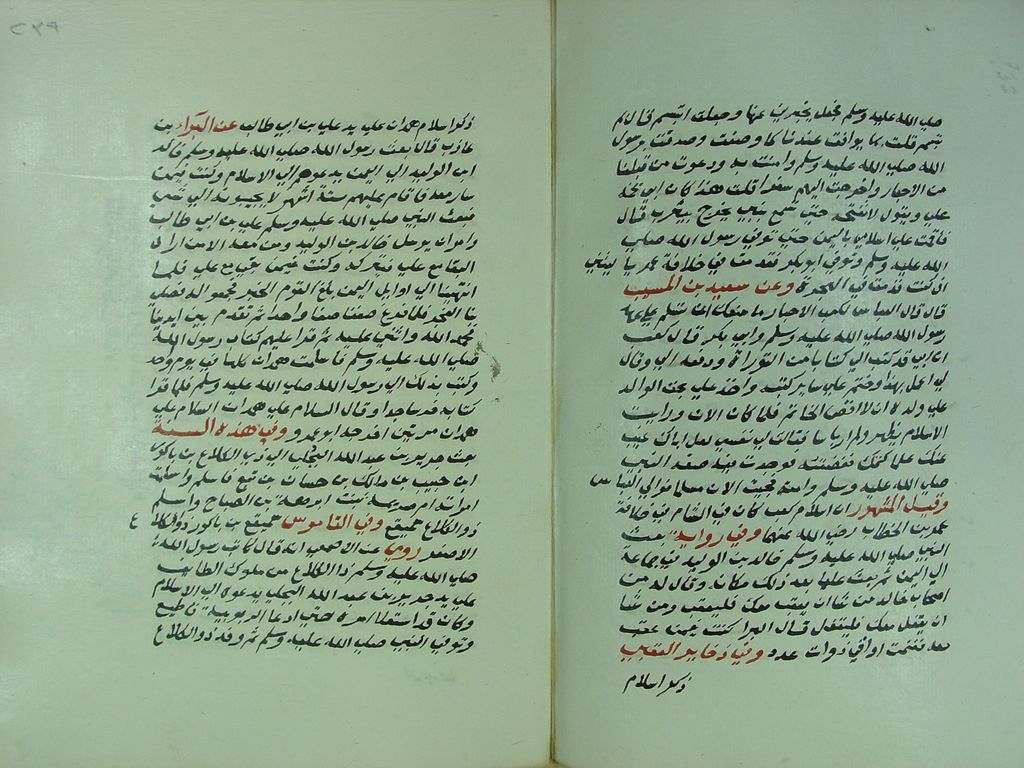 صلي الله عليه وسلم فجعل يخبرني عنها وجعلت ابتسم قال لم
تبسم قلت بما يوافق عندنا كما وصفت وصدقت برسول
الله صلي الله عليه وسلم وامنت به ودعوت من قبلنا
من الاحبار واخرجت اليهم سفرا قلت هذا كان ابي يختمه
علي ويقول لا تفتحه حتي تسمع بنبي يخرج بيثرب قال
فاقمت علي اسلامي باليمن حتي توفي رسول الله صلي
الله عليه وسلم وتوفي ابو بكر فقدمت في خلافة عمر يا ليتني
اني كنت تقدمت في الهجرة وعن سعيد بن المسيب
قال قال العباس لكعب الاحبار ما منعك ان تسلم علي عهد
رسول الله صلي الله عليه وسلم وابي بكر قال كعب
ان ابي قد كتب لي كتابا من التوراة ودفعه الي وقال
لي اعمل بهذا وختم علي ساير كتبه واخذ علي بحق الوالد
علي ولده ان لا افض الخاتم فلما كان الان ورايت
الاسلام يظهر ولم ار باسا فقالت لي نفسي لعل اباك غيب
عنك علما كتمك ففضضته فوجدت فيه صفة النبي
صلي الله عليه وسلم وامته فجيت الان مسلما فوالي العباس
وقيل المشهور ان اسلام كعب كان في الشام في خلافة
عمر بن الخطاب رضي الله عنهما وفي رواية بعث
النبي صلي الله عليه وسلم خالد بن الوليد في جماعة
الي اليمن ثم بعث عليا بعد ذلك مكانه وقال له مر
اصحاب خالد من شا ان يعقب معك فليعقب ومن شا
ان يقفل معك فليقفل قال البرا كنت فيمن عقب
معه فغنمت اواقي ذوات عدد وفي ذخاير العقبي
ذكر اسلام
ذكر اسلام همدان علي يد علي بن ابي طالب عن البراء بن
عازب قال بعث رسول الله صلي الله عليه وسلم خالد
ابن الوليد الي اليمن يدعوهم الي الاسلام وكنت فيمن
سار معه فاقام عليهم ستة اشهر لا يجيبونه الي شي
فبعث النبي صلي الله عليه وسلم علي بن ابي طالب
وامره ان يرسل خالد بن الوليد ومن معه الا من اراد
البقا مع علي فيتركه وكنت فيمن بقي مع علي فلما
انتهينا الي اوايل اليمن بلغ القوم الخبر فجمعوا له فصلي
بنا الفجر فلما فرغ صفنا صفا واحدا ثم تقدم بين ايدينا
فحمد الله واثني عليه ثم قرا عليهم كتاب رسول الله
صلي الله عليه وسلم فاسلمت همدان كلها في يوم واحد
وكتب بذلك الي رسول الله صلي الله عليه وسلم فلما قرا
كتابه خر ساجدا وقال السلام علي همدان السلام علي
همدان مرتين اخرجه ابو عمرو وفي هذه السنة
بعث جرير بن عبد الله البجلي الي ذي الكلاع بن باكور
ابن حبيب بن مالك بن حسان بن تبع فاسلم واسلمت
امراته ضريبة بنت ابرهة بن الصباح واسم
ذو الكلاع سميفع وفي القاموس سميفع بن باكور ذو الكلاع
الاصغر روي عن الاصمعي انه قال كاتب رسول الله
صلي الله عليه وسلم ذا الكلاع من ملوك الطايف
علي يد جرير بن عبد الله البجلي يدعوه الي الاسلام
وكان قد استعلا امره حتي ادعا الربوبية فاطيع
وتوفي النبي صلي الله عليه وسلم ثم وفد ذو الكلاع